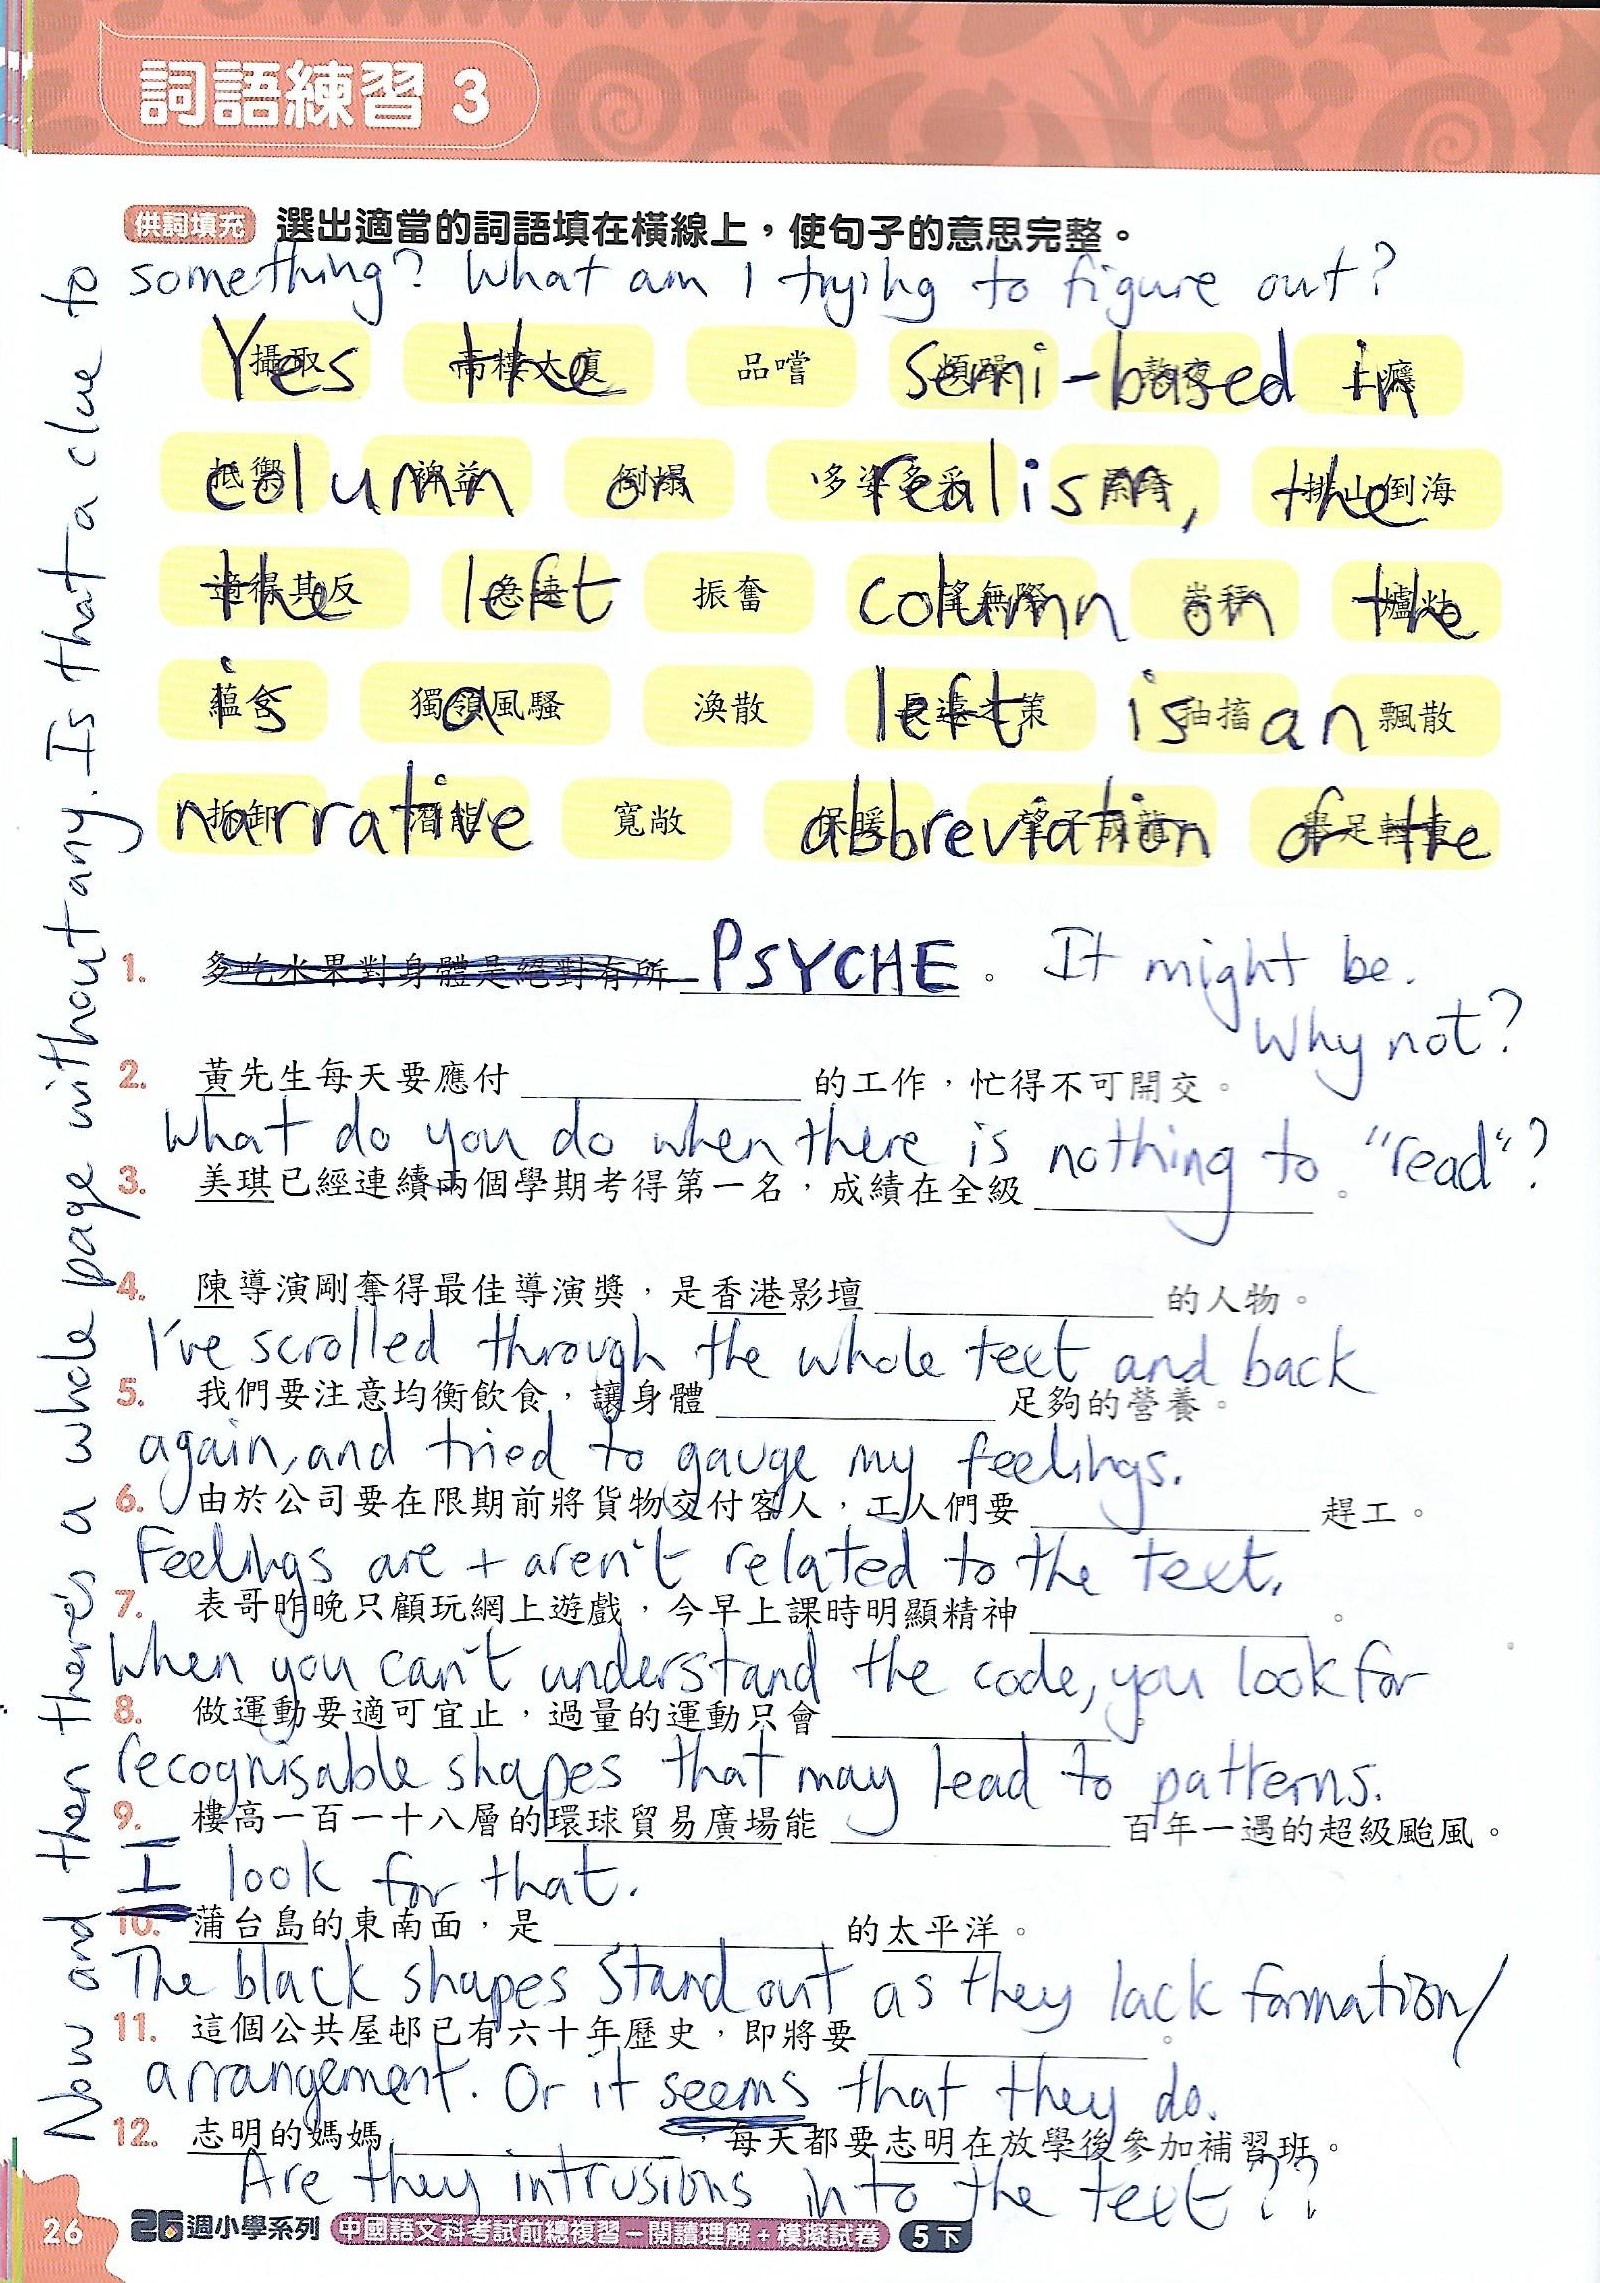 詞語練習 3
供詞填充 選出適當的詞語填在橫線上，使句子的意思完整。
something? What am I trying to figure out?
攝取 高樓大廈 品嚐 煩躁 熬夜 上癮
Yes the semi-based in
抵禦 裨益 倒塌 多姿多采 排山倒海
column on realism, the
適得其反 急速 振奮 一望無際 崇拜 爐灶
the left column on the
蘊含 獨領風騷 渙散 長遠之策 抽搐 飄散
is a left is an
拆卸 潛能 寬敞 保暖 望子成龍 舉足輕重
narrative abbreviation of the
1. 多吃水果對身體是絕對有所 PSYCHE 。 It might be.
Why not?
2. 黃先生每天要應付 的工作，忙得不可開交。
What do you do when there is nothing to "read"?
3. 美琪已經連續兩個學期考得第一名，成績在全級 。
4. 陳導演剛奪得最佳導演獎，是香港影壇 的人物。
I've scrolled through the whole text and back
5. 我們要注意均衡飲食，讓身體 足夠的營養。
again, and tried to gauge my feelings.
6. 由於公司要在限期前將貨物交付客人，工人們要 趕工。
Feelings are + aren't related to the text.
7. 表哥昨晚只顧玩網上遊戲，今早上課時明顯精神 。
When you can't understand the code, you look for
8. 做運動要適可宜止，過量的運動只會 。
recognisable shapes that may lead to patterns.
9. 樓高一百一十八層的環球貿易廣場能 百年一遇的超級颱風。
I look for that.
10. 蒲台島的東南面，是 的太平洋。
The black shapes stand out as they lack formation/
11. 這個公共屋邨已有六十年歷史，即將要 。
arrangement. Or it seems that they do.
12. 志明的媽媽 ，每天都要志明在放學後參加補習班。
Are they intrusions into the text??
Now and then there's a whole page without any. Is that a clue to
26 26週小學系列 中國語文科考試前總複習－閱讀理解+模擬試卷 5下